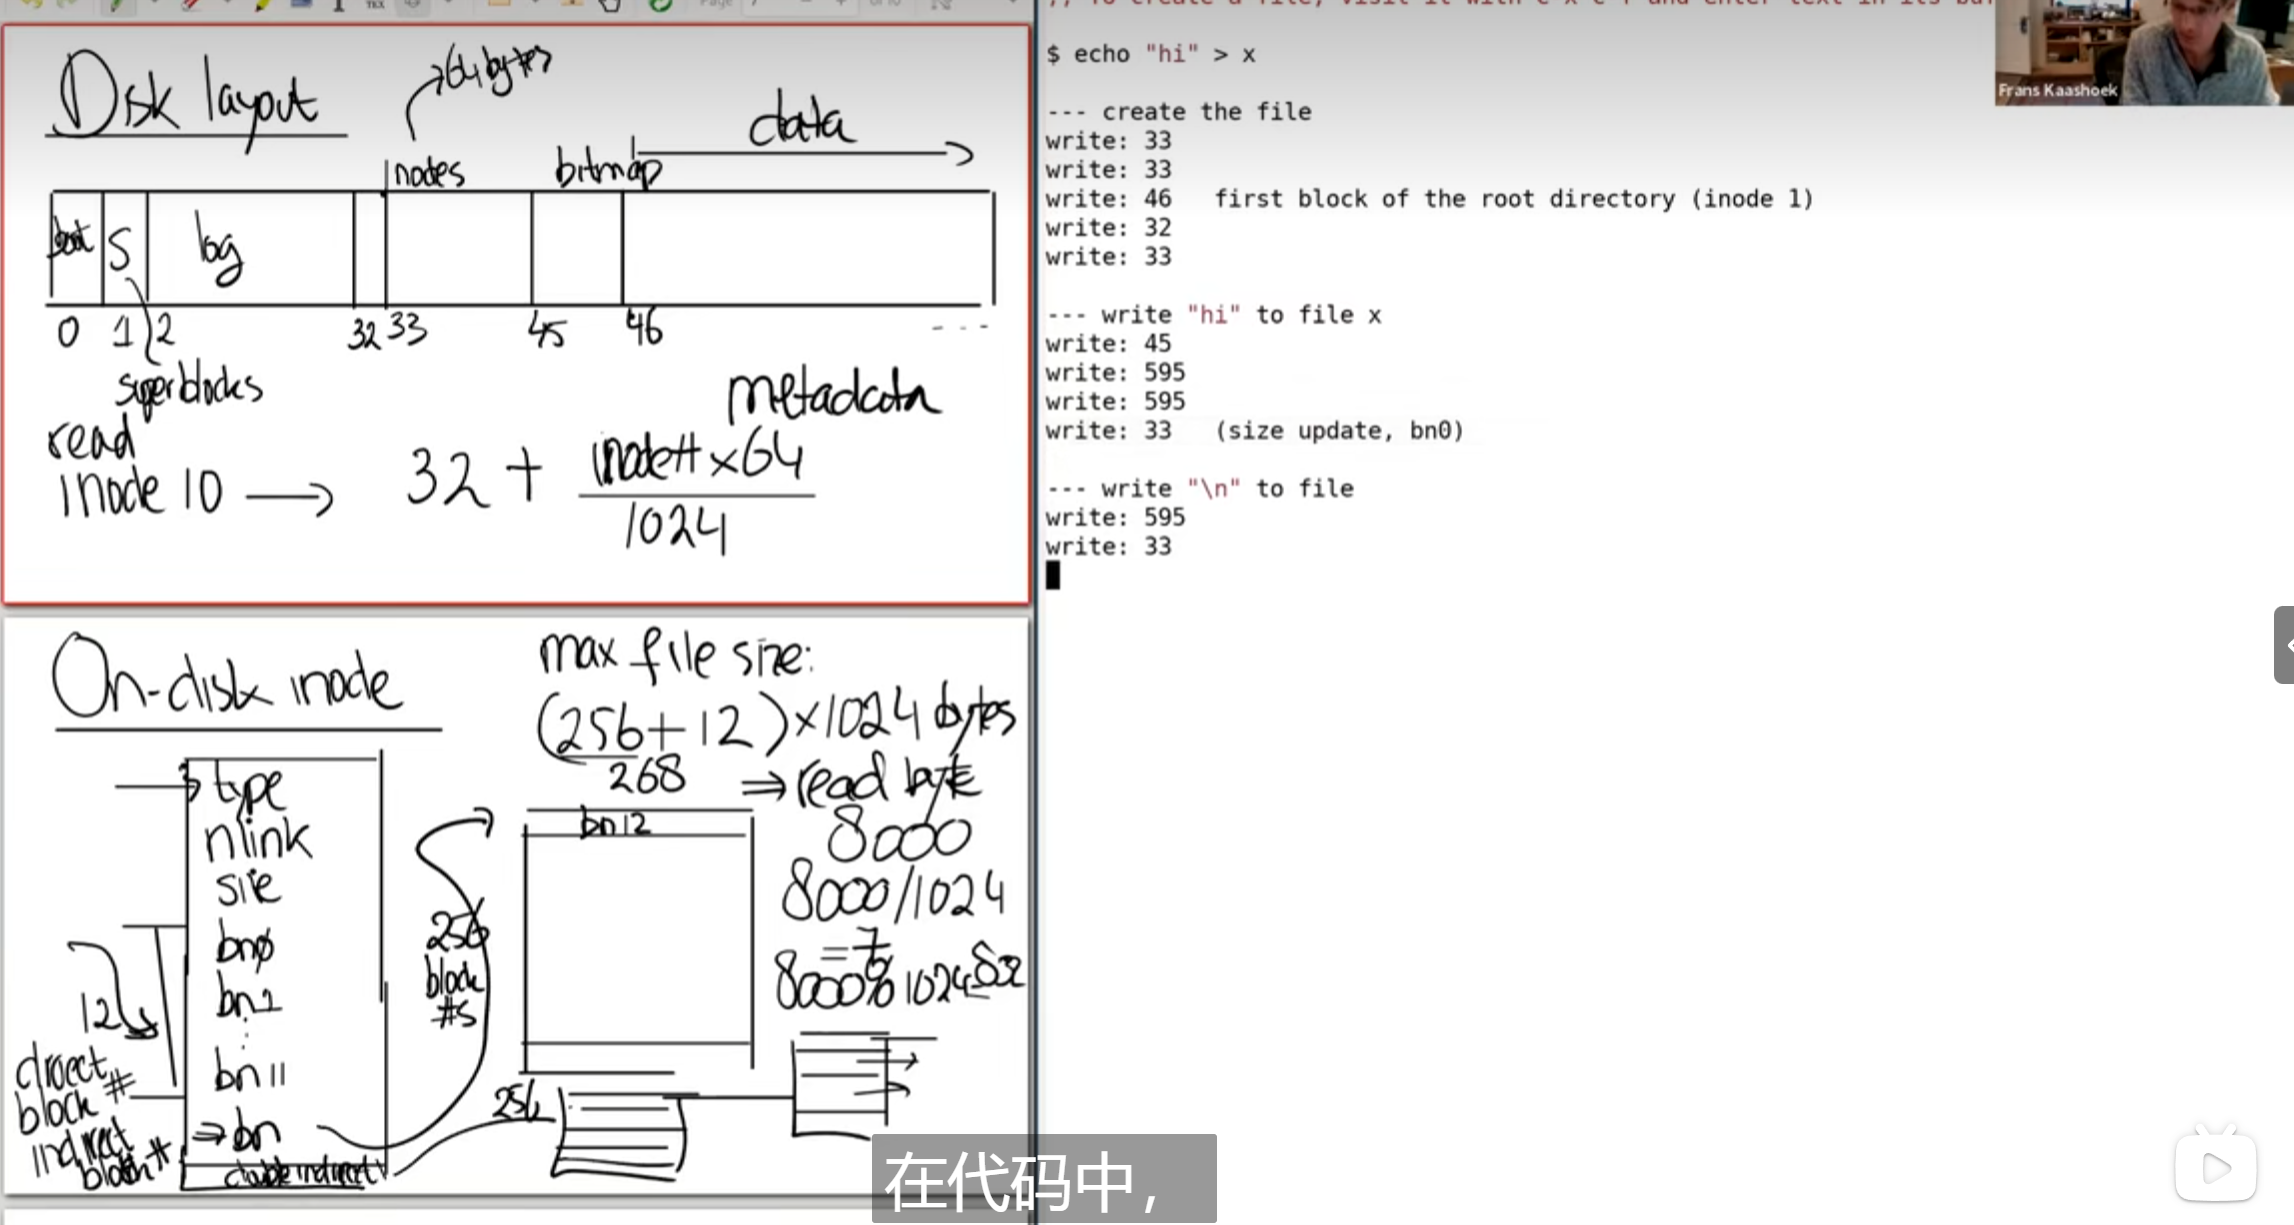 Disk layout
→64 bytes
inodes
bitmap
data
boot
S
log
0
1
2
32
33
45
46
superblocks
metadata
read
inode 10 →
32 + inode# × 64
1024
On-disk inode
type
nlink
size
bn0
bn1
bn 11
bn
double indirect
12
direct
block #
indirect
block #
256
block
#s
max file size:
(256+12)×1024 bytes
268
bn12
256
⇒ read byte
8000
8000/1024
= 7
8000%1024
$ echo "hi" > x
--- create the file
write: 33
write: 33
write: 46   first block of the root directory (inode 1)
write: 32
write: 33
--- write "hi" to file x
write: 45
write: 595
write: 595
write: 33   (size update, bn0)
--- write "\n" to file
write: 595
write: 33
Frans Kaashoek
在代码中，